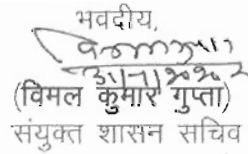 भवदीय,
(विमल कुमार गुप्ता)
संयुक्त शासन सचिव